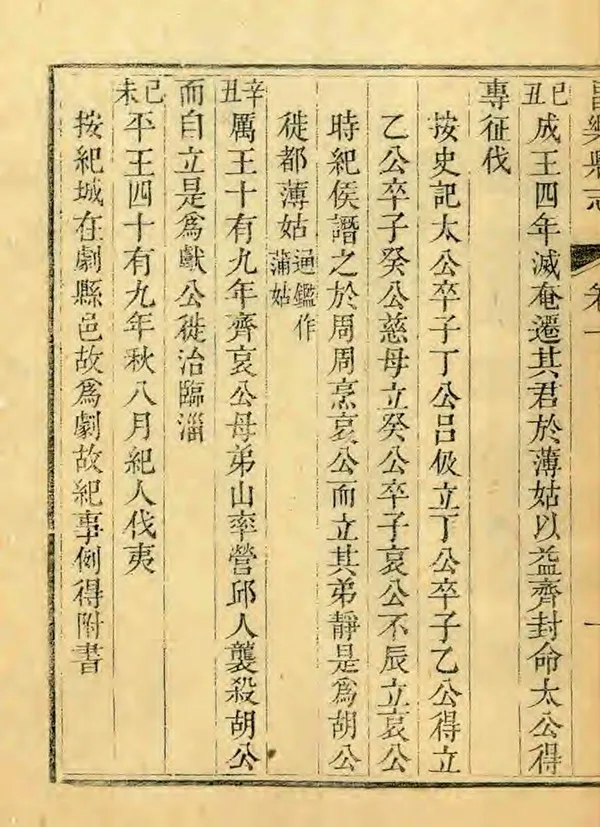 昌樂縣志 卷一 一
己丑成王四年滅奄遷其君於薄姑以益齊封命太公得
專征伐
按史記太公卒子丁公呂伋立丁公卒子乙公得立
乙公卒子癸公慈母立癸公卒子哀公不辰立哀公
時紀侯譖之於周周烹哀公而立其弟靜是爲胡公
徙都薄姑通鑑作蒲姑
辛丑厲王十有九年齊哀公母弟山率營邱人襲殺胡公
而自立是爲獻公徙治臨淄
己未平王四十有九年秋八月紀人伐夷
按紀城在劇縣邑故爲劇故紀事例得附書